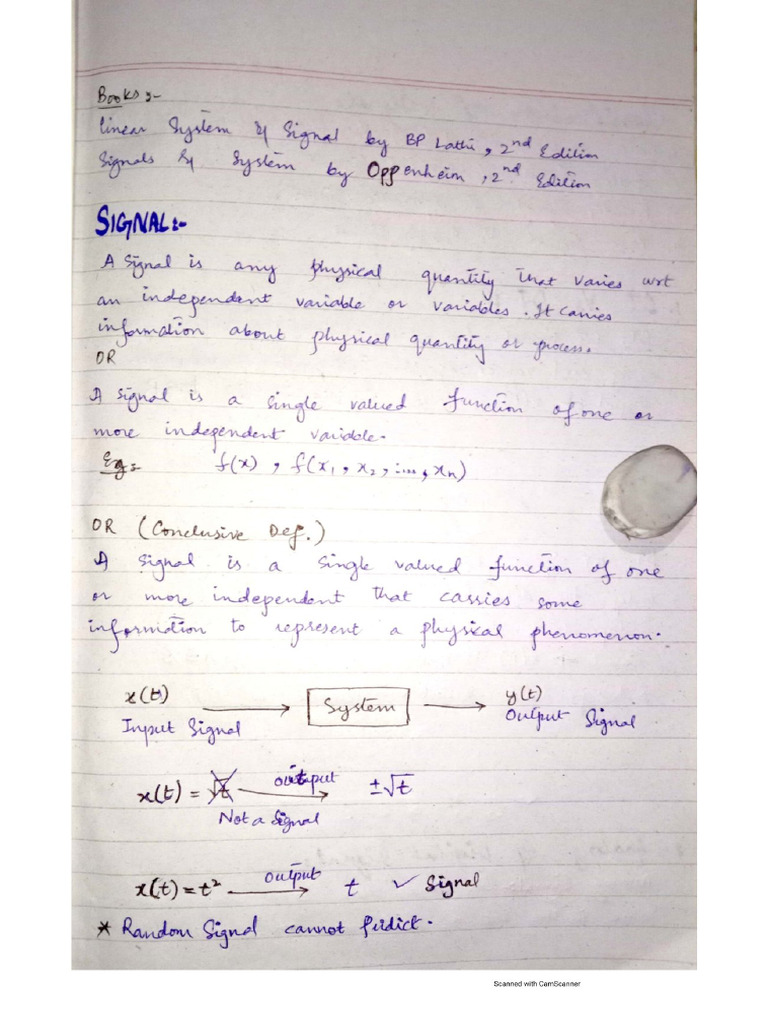 Books:-
Linear System & Signal by BP Lathi, 2nd Edition
Signals & System by Oppenheim, 2nd Edition
SIGNAL:-
A Signal is any physical quantity that varies wrt
an independent variable or variables. It carries
information about physical quantity or process.
OR
A signal is a single valued function of one or
more independent variable.
Eg:- f(x), f(x1, x2, ...., xn)
OR (Conclusive Def.)
A signal is a single valued function of one
or more independent that carries some
information to represent a physical phenomenon.
x(t) → System → y(t)
Input Signal Output Signal
x(t) = √t output → ±√t
Not a Signal
x(t) = t² output → t ✓ Signal
* Random Signal cannot Pridict.
Scanned with CamScanner